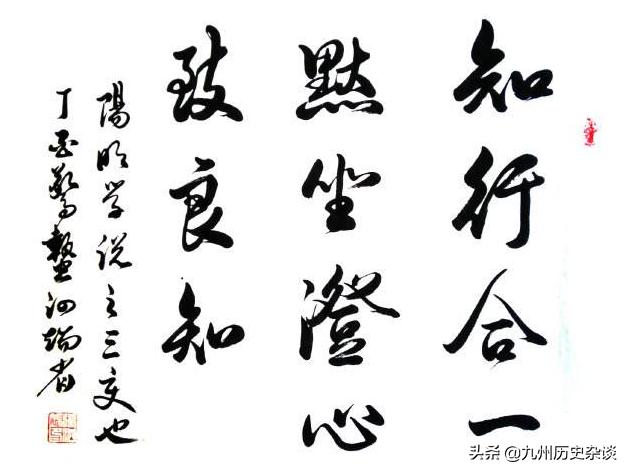 知行合一
黙坐澄心
致良知
陽明学说之三变也
丁酉驚蟄
头条 @九州历史杂谈